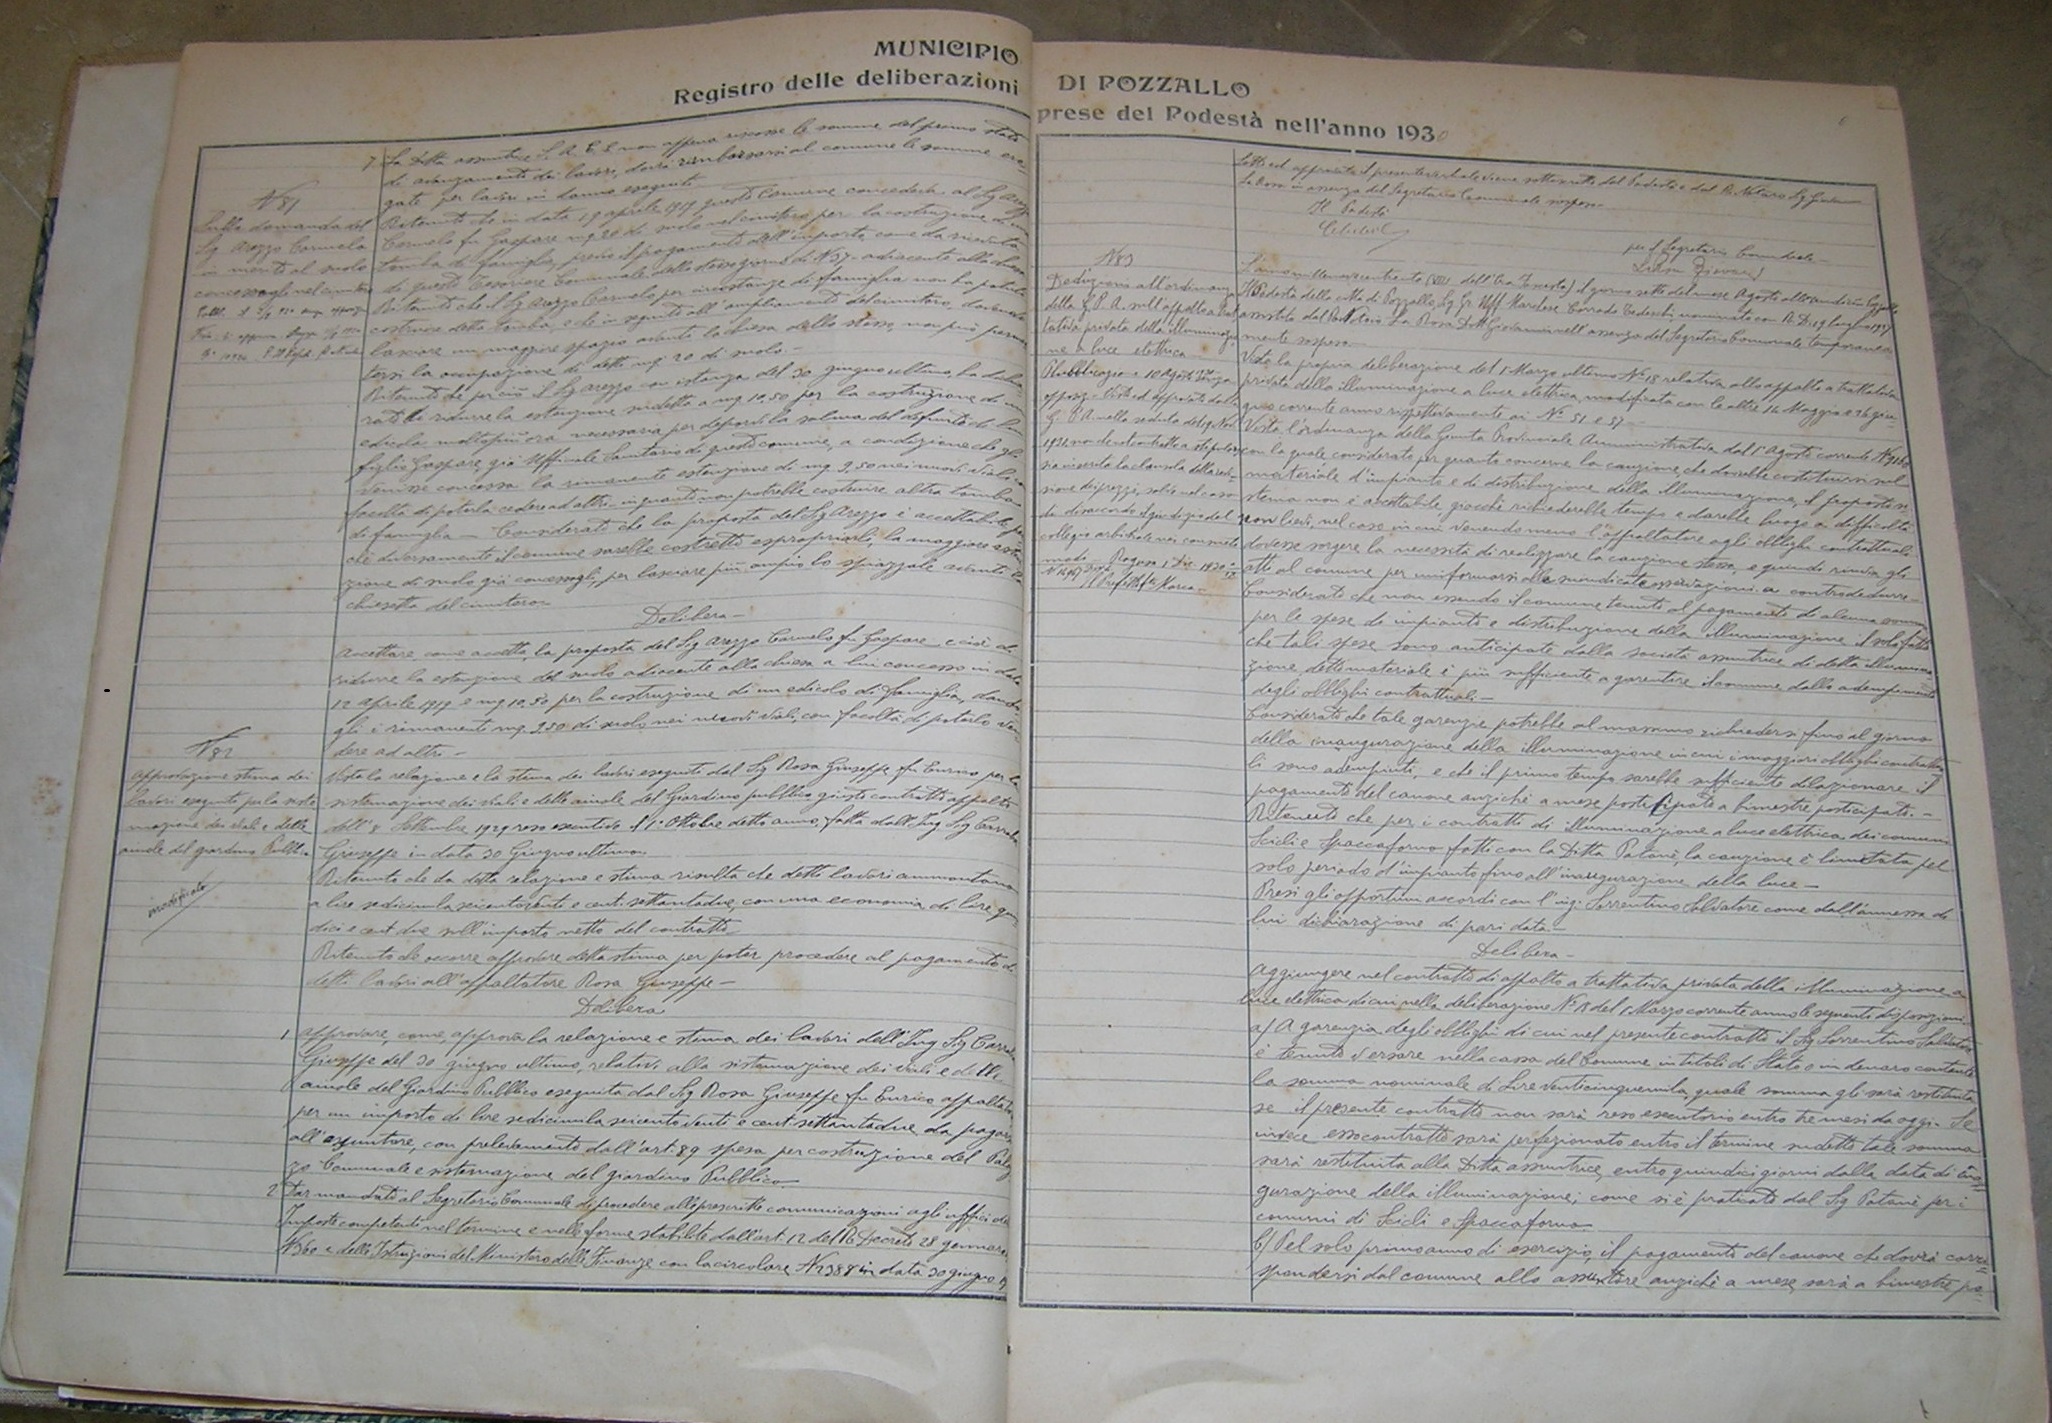 MUNICIPIO
Registro delle deliberazioni
7 La Ditta assuntrice S. A. E. E. non appena riscosse le somme del primo stato
di avanzamento dei lavori, dovrà rimborsarsi al comune le somme ero-
gate per lavori in danno eseguiti
N 81
Sulla domanda del
Sig Arezzo Carmelo
in merito al suolo
concessogli nel cimitero
Ritenuto che in data 12 aprile 1919 questo Comune concedeva al Sig Arezzo
Carmelo fu Gaspare mq. 20 di suolo nel cimitero per la costruzione di una
tomba di famiglia, previo il pagamento dell'importo come da ricevuta
di questo Tesoriere Comunale dello stesso giorno di N 37 - adiacente alla chiesa
Ritenuto che il Sig Arezzo Carmelo per circostanze di famiglia non ha potuto
costruire detta tomba, e che in seguito all'ampliamento del cimitero, dovendo
lasciare un maggiore spazio avanti la chiesa dello stesso, non può permet
tersi la occupazione di detti mq. 20 di suolo. -
Ritenuto che perciò il Sig Arezzo con istanza del 30 giugno ultimo, ha dichia
rato di ridurre la estenzione suddetta a mq 10,50 per la costruzione di un
edicola, molto più ora necessaria per deporvi la salma del defunto di lui
figlio Gaspare, già Ufficiale Sanitario di questo comune, a condizione che gli
venisse concessa la rimanente estenzione di mq. 9,50 nei nuovi viali con
facoltà di poterla cedere ad altri, in quanto non potrebbe costruire altra tomba
di famiglia - Considerato che la proposta del Sig Arezzo è accettabile per
chè diversamente il comune sarebbe costretto espropriarli, la maggiore esten
zione di suolo già concessogli, per lasciare più ampio lo spiazzale avanti la
chiesetta del cimitero -
Delibera -
Accettare, come accetta, la proposta del Sig Arezzo Carmelo fu Gaspare e cioè di
ridurre la estenzione del suolo adiacente alla chiesa a lui concesso in data
12 aprile 1919 a mq 10,50 per la costruzione di un edicola di famiglia, dando
gli i rimanenti mq. 9,50 di suolo nei nuovi viali, con facoltà di poterlo ven
dere ad altri -
N 82
Approvazione stima dei
lavori eseguiti per la siste
mazione dei viali e delle
aiuole del giardino Pubblico
modificato
Vista la relazione e la stima dei lavori eseguiti dal Sig Rosa Giuseppe fu Enrico per la
sistemazione dei viali e delle aiuole del Giardino pubblico giusto contratto appalto
dell'8 Settembre 1929 reso esecutivo il 1° Ottobre detto anno, fatta dall'Ing Sig
Giuseppe in data 30 Giugno ultimo.
Ritenuto che da detta relazione e stima risulta che detti lavori ammontano
a lire sedicimila seicentoventi e cent. settantadue, con una economia di lire quin
dici e cent due sull'importo netto del contratto
Ritenuto che occorre approvare detta stima per poter procedere al pagamento di
detti lavori all'appaltatore Rosa Giuseppe -
Delibera
1 Approvare, come approva la relazione e stima dei lavori dell'Ing Sig
Giuseppe del 30 giugno ultimo, relativi alla sistemazione dei viali e delle
aiuole del Giardino Pubblico eseguita dal Sig Rosa Giuseppe fu Enrico appaltatore
per un importo di lire sedicimila seicentoventi e cent settantadue da pagarsi
all'assuntore, con prelevamento dall'art: 89 spesa per costruzione del Palaz
zo Comunale e sistemazione del giardino Pubblico
2 Dar mandato al Segretario Comunale di procedere alle prescritte comunicazioni agli uffici delle
Imposte competenti nel termine e nelle forme stabilite dall'art. 12 del R. Decreto 28 gennaio
N 360 e delle Istruzioni del Ministero delle Finanze con la circolare N 2388 in data 30 giugno
DI POZZALLO
prese del Podestà nell'anno 1930
6
Letto ed approvato il presente verbale viene sottoscritto dal Podestà e dal R. Notaro Sig
La Rosa in assenza del Segretario Comunale sospeso -
Il Podestà
per il Segretario Comunale
N 83
Dedizioni all'ordinanza
della G. P. A. sull'appalto a trat
tativa privata della illuminazio
ne a luce elettrica
L'anno millenovecentotrenta (VIII dell'Era Fascista) il giorno sette del mese Agosto alle ore dieci in Pozzallo
Il Podestà della città di Pozzallo, Sig Gr. Uff. Marchese Corrado Tedeschi, nominato con R. D. 19 luglio 1927
assistito dal R. Notaio La Rosa Dott Giovanni nell'assenza del Segretario Comunale temporanea
mente sospeso -
Vista la propria deliberazione del 1° Marzo ultimo N° 18 relativa allo appalto a trattativa
privata della illuminazione a luce elettrica, modificata con le altre 14 Maggio e 26 giu
gno corrente anno rispettivamente ai N° 51 e 57 -
Vista l'ordinanza della Giunta Provinciale Amministrativa del 1° Agosto corrente
con la quale considerato per quanto concerne la cauzione che dovrebbe costituirsi sul
materiale d'impianto e di distribuzione della illuminazione, il proposto si
stema non è accettabile, giacchè richiederebbe tempo e darebbe luogo a difficoltà
non lievi, nel caso in cui venendo meno l'appaltatore agli obblighi contrattuali
dovesse sorgere la necessità di realizzare la cauzione stessa, e quindi rinvia gli
atti al comune per uniformarsi alle suindicate osservazioni: a controdedurre -
Considerato che non essendo il comune tenuto al pagamento di alcuna somma
per le spese di impianto e distribuzione della illuminazione il solo fatto
che tali spese sono anticipate dalla società assuntrice di detta illumina
zione, detto materiale è più sufficiente a garentire il comune dallo adempimento
degli obblighi contrattuali -
Considerato che tale garenzia, potrebbe al massimo richiedersi fino al giorno
della inaugurazione della illuminazione in cui i maggiori obblighi contrattua
li sono adempiuti, e che il primo tempo sarebbe sufficiente dilazionare il
pagamento del canone anzichè a mese posticipato a bimestre posticipato. -
Ritenuto che per i contratti di illuminazione a luce elettrica, dei comuni
Scicli e Spaccaforno fatti con la Ditta Patanè, la cauzione è limitata pel
solo periodo d'impianto fino all'inaugurazione della luce -
Presi gli opportuni accordi con l'ing: Sorrentino Salvatore come dall'annessa di
lui dichiarazione di pari data -
Delibera -
Aggiungere nel contratto di appalto a trattativa privata della illuminazione a
luce elettrica di cui nella deliberazione N° 18 del 1° Marzo corrente anno le seguenti disposizioni
a) A garenzia degli obblighi di cui nel presente contratto il Sig Sorrentino Salvatore
è tenuto versare nella cassa del Comune in titoli di Stato o in denaro contante
la somma nominale di Lire venticinquemila, quale somma gli sarà restituita
se il presente contratto non sarà reso esecutorio entro tre mesi da oggi. Se
invece esso contratto sarà perfezionato entro il termine suddetto tale somma
sarà restituita alla Ditta assuntrice, entro quindici giorni dalla data di inau
gurazione della illuminazione; come si è praticato dal Sig Patanè per i
comuni di Scicli e Spaccaforno
b) Pel solo primo anno di esercizio, il pagamento del canone che dovrà corri-
spondersi dal comune allo assuntore anzichè a mese sarà a bimestre po-